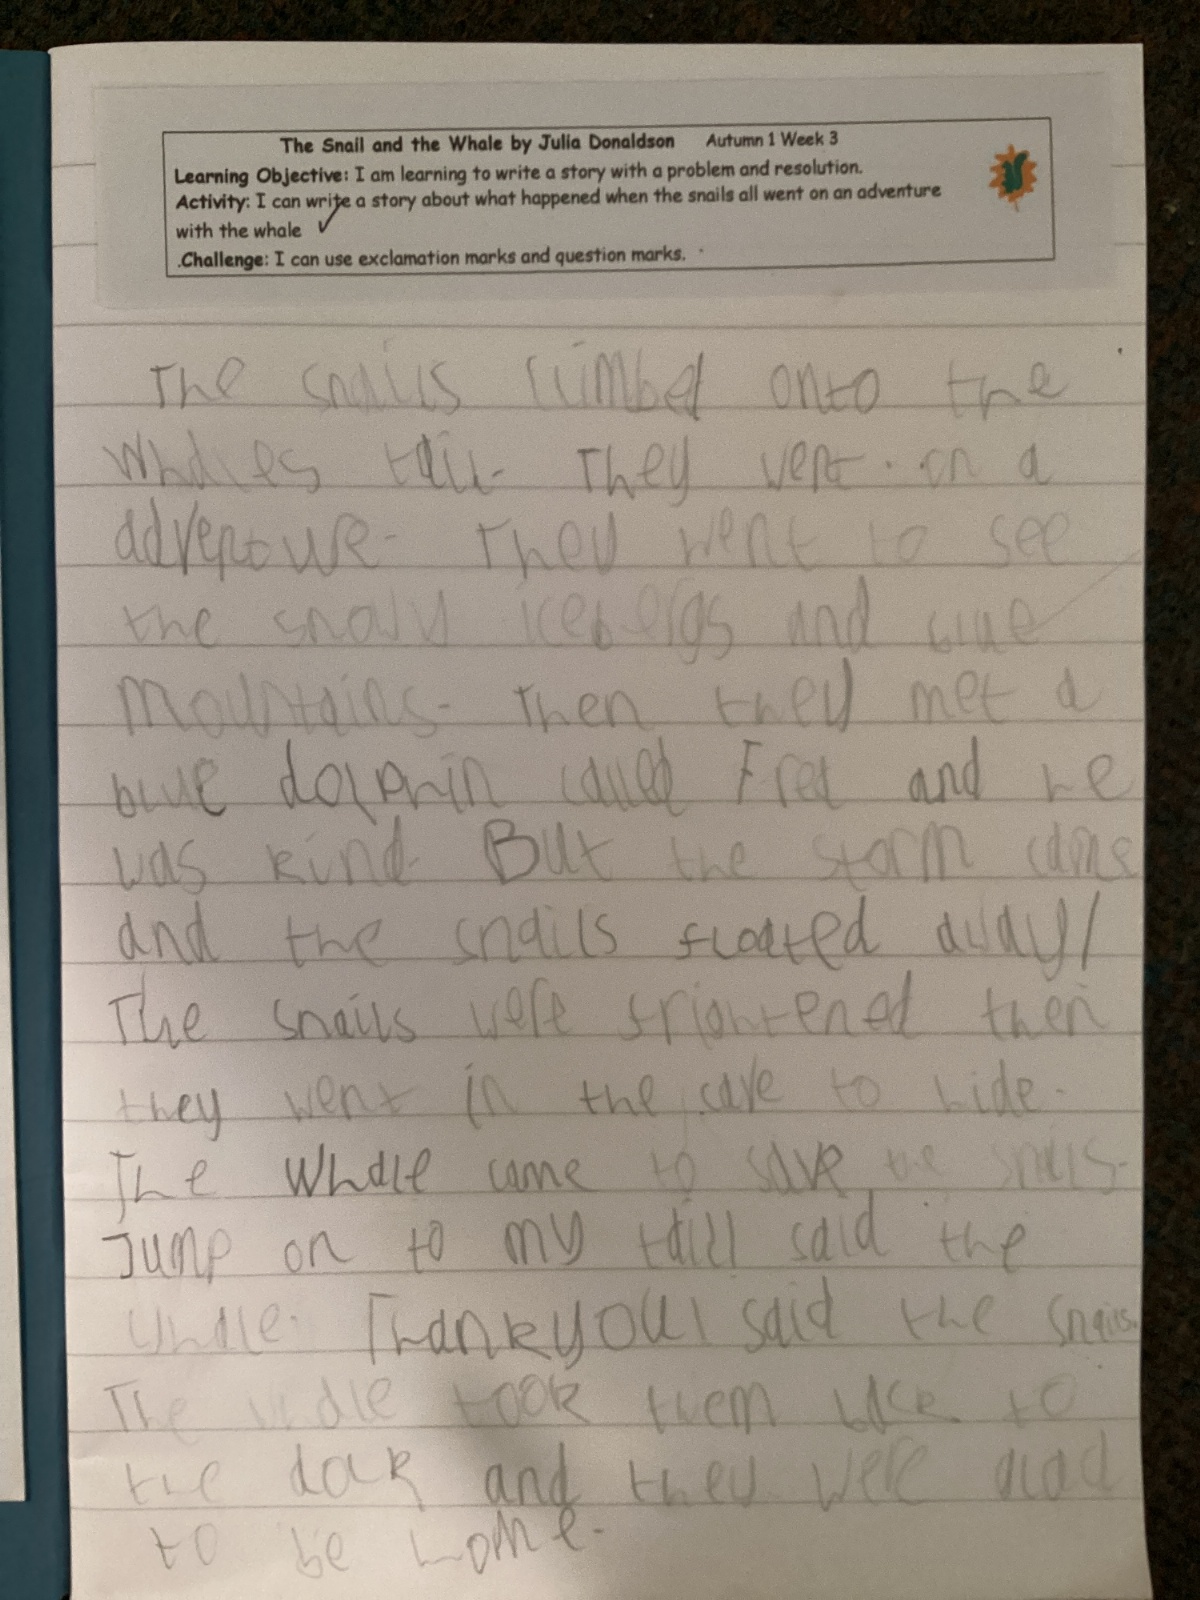 The Snail and the Whale by Julia Donaldson Autumn 1 Week 3
Learning Objective: I am learning to write a story with a problem and resolution.
Activity: I can write a story about what happened when the snails all went on an adventure
with the whale
.Challenge: I can use exclamation marks and question marks.
The snails climbed onto the
Whales tail. They went on a
adventure. They went to see
the snowy icebergs and blue
Mountains. Then they met a
blue dolphin called Fred and he
was kind. But the storm came
and the snails floated away!
The snails were frightened then
they went in the cave to hide.
The Whale came to save the snails.
Jump on to my taill said the
Whale. Thankyou! said the snails.
The whale took them back to
the dock and they were glad
to be home.